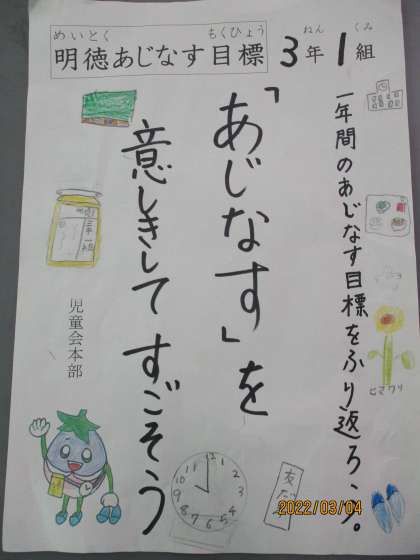 めいとく もくひょう
明徳あじなす目標
ねん くみ
3年1組
一年間のあじなす目標をふり返ろう。
「あじなす」を
意しきして すごそう
児童会本部
三年一組
ヒマワリ
12
9
8
7
6
5
4
3
2
1
2022/03/04